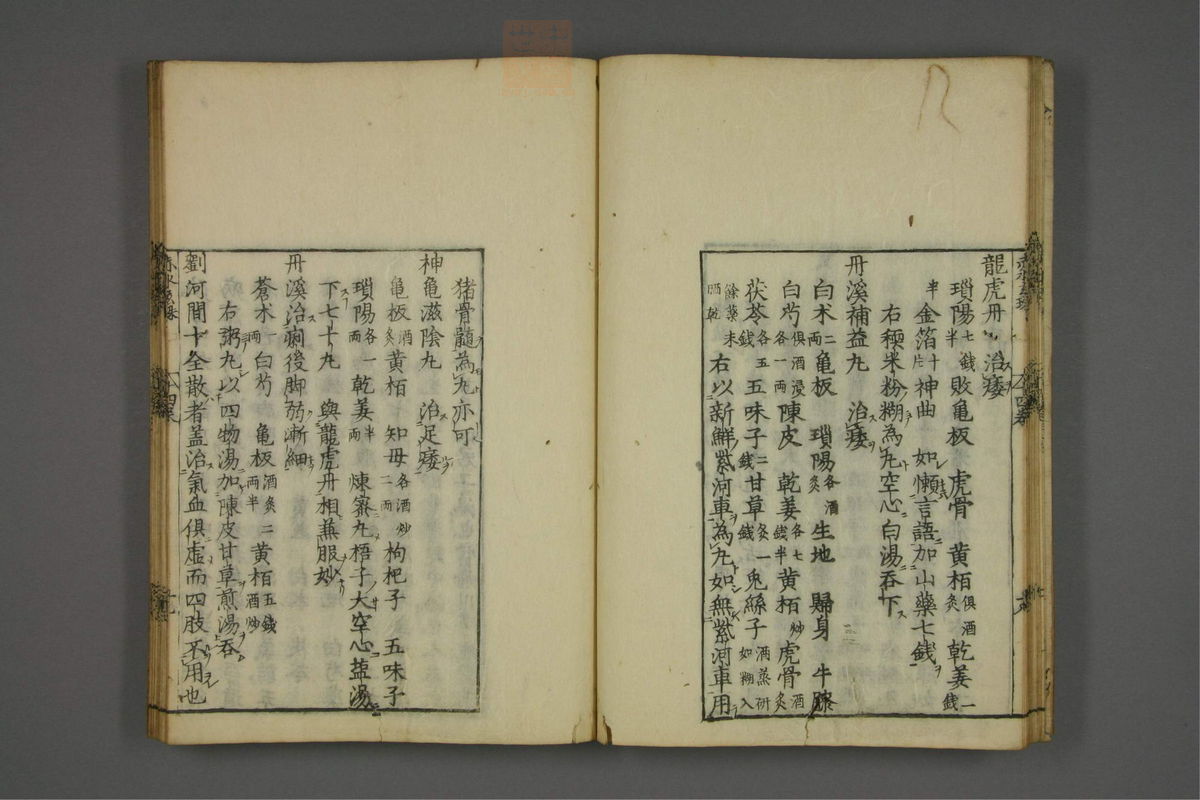 龍虎丹 治痿
瑣陽七錢半敗亀板 虎骨 黄栢俱酒炙乾姜一錢
半金箔十片神曲 如懶言語加山藥七錢
右粳米粉糊為丸空心白湯吞下
丹溪補益丸 治痿
白朮二両亀板 瑣陽各酒炙生地 歸身 牛膝
俱酒浸各一両白芍陳皮 乾姜各七錢半黄栢炒虎骨酒炙
茯苓各五錢五味子二錢甘草炙一錢兎絲子酒蒸研如糊入
餘藥末晒乾右以新鮮紫河車為丸如無紫河車用
猪骨髓為丸亦可
神亀滋陰丸 治足痿
亀板酒炙黄栢 知母各酒炒二両枸杞子 五味子
瑣陽各一両乾姜半両 煉蜜丸梧子大空心盐湯
下七十丸 與龍虎丹相兼服妙
丹溪治痢後脚弱漸細
蒼朮 白芍 亀板酒炙二両半黄栢酒炒五錢
右粥丸以四物湯加陳皮甘草煎湯吞
劉河間十全散者盖治氣血俱虚而四肢不用也